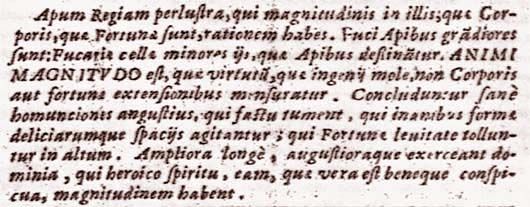 Apum Regiam perlustra, qui magnitudinis in illis, quę Cor-
poris, quę Fortunę sunt, rationem habes. Fuci Apibus grãdiores
sunt: Fucarię cellę minores ijs, quę Apibus destinãtur. ANIMI
MAGNITVDO est, quę virtutũ, quę ingenij mole, non Corporis
aut fortunę extensionibus mensuratur. Concluduntur sanè
homunciones angustius, qui fastu tument, qui inanibus formę
deliciarumque spacijs agitantur; qui Fortunę leuitate tollun-
tur in altum. Ampliora longè, augustioraque exerceant do-
minia, qui heroico spiritu, eam, quę vera est beneque conspi-
cua, magnitudinem habent.